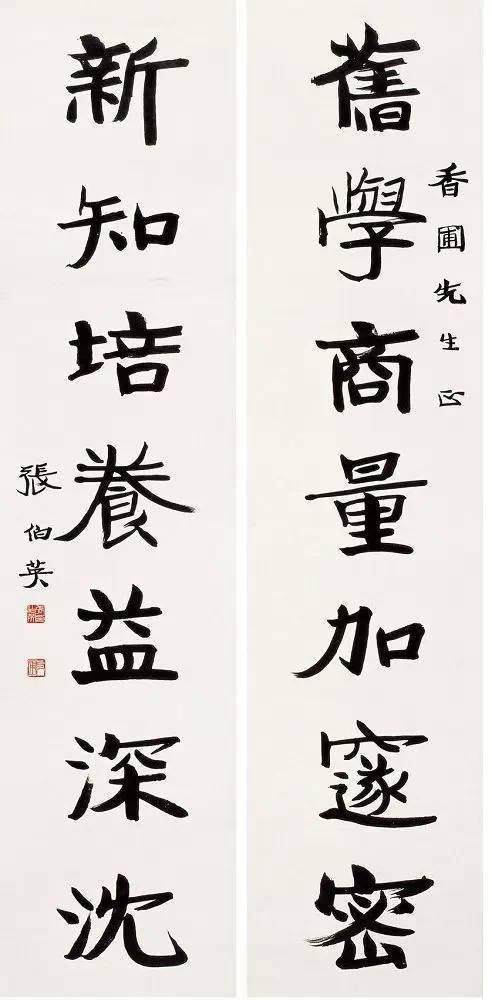 香圃先生正
舊學商量加邃密
新知培養益深沈
張伯英